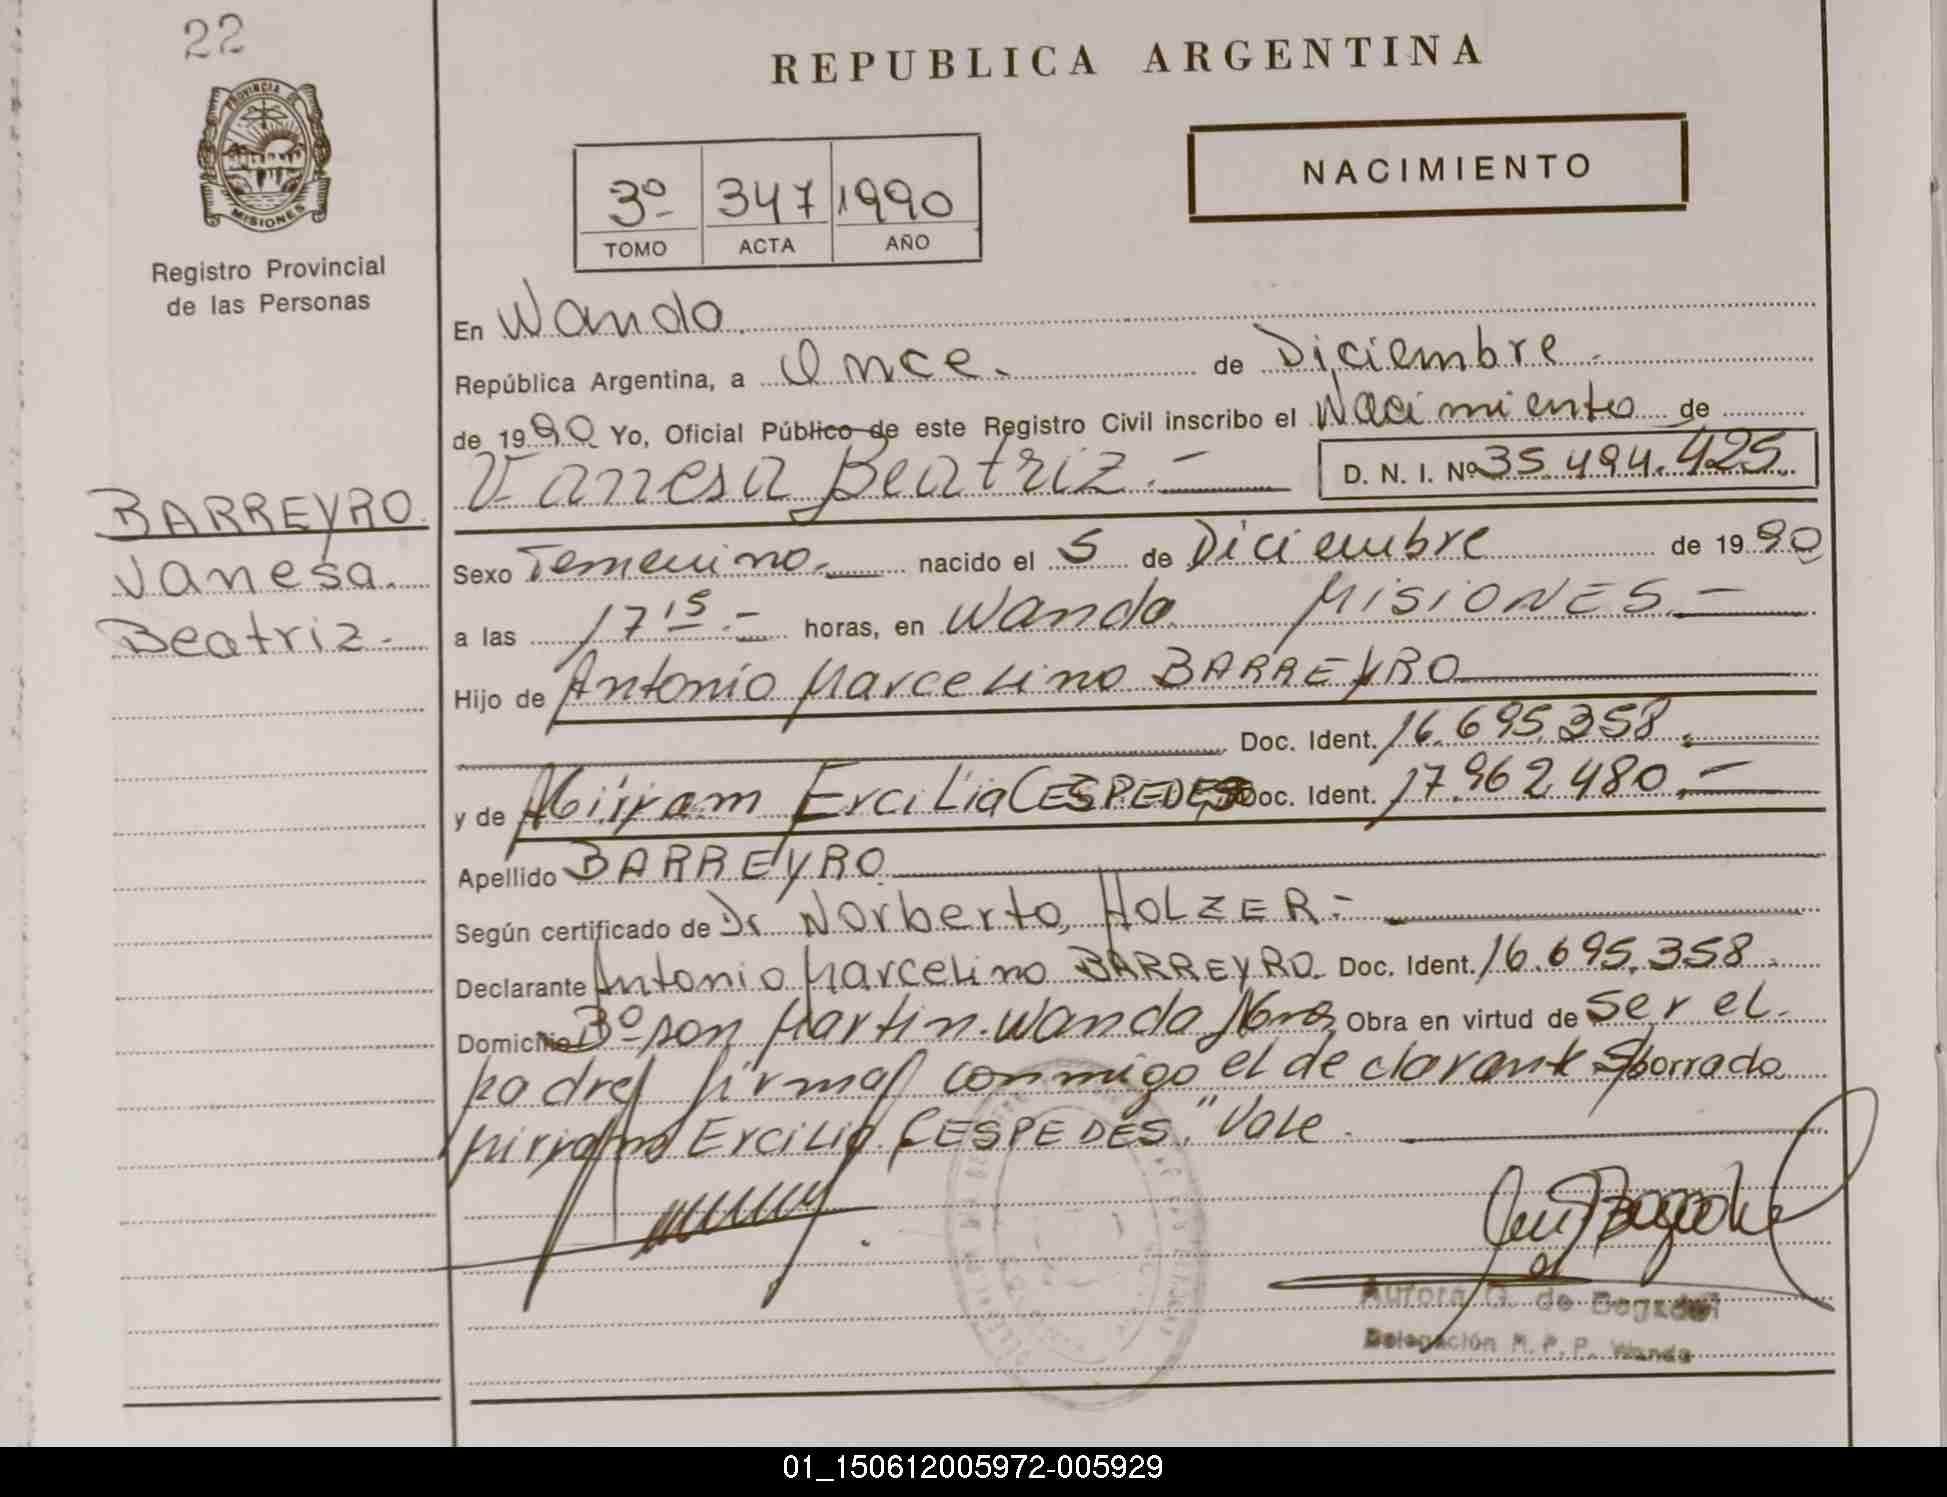 22
REPUBLICA ARGENTINA
PROVINCIA DE
MISIONES
Registro Provincial
de las Personas
3º 347 1990
TOMO ACTA AÑO
NACIMIENTO
En Wanda.
República Argentina, a Once. de Diciembre.
de 1990 Yo, Oficial Público de este Registro Civil inscribo el Nacimiento de
Vanesa Beatriz.- D. N. I. Nº 35.494.425.
BARREYRO.
Vanesa.
Beatriz.-
Sexo Femenino. nacido el 5 de Diciembre de 1990
a las 17 15.- horas, en Wanda MISIONES.-
Hijo de Antonio Marcelino BARREYRO
Doc. Ident. 16.695.358.
y de Mirjam Ercilia CESPEDES Doc. Ident. 17.962.480.-
Apellido BARREYRO
Según certificado de Dr Norberto, HOLZER.-
Declarante Antonio Marcelino BARREYRO. Doc. Ident. 16.695.358.
Domicilio Bº San Martin. Wanda Mnes Obra en virtud de ser el.
padre/ firma/ conmigo el declarante S/borrado
Mirjam Ercilia CESPEDES." Vale.
Aurora G. de
Delegación R. P. P. Wanda
01_150612005972-005929